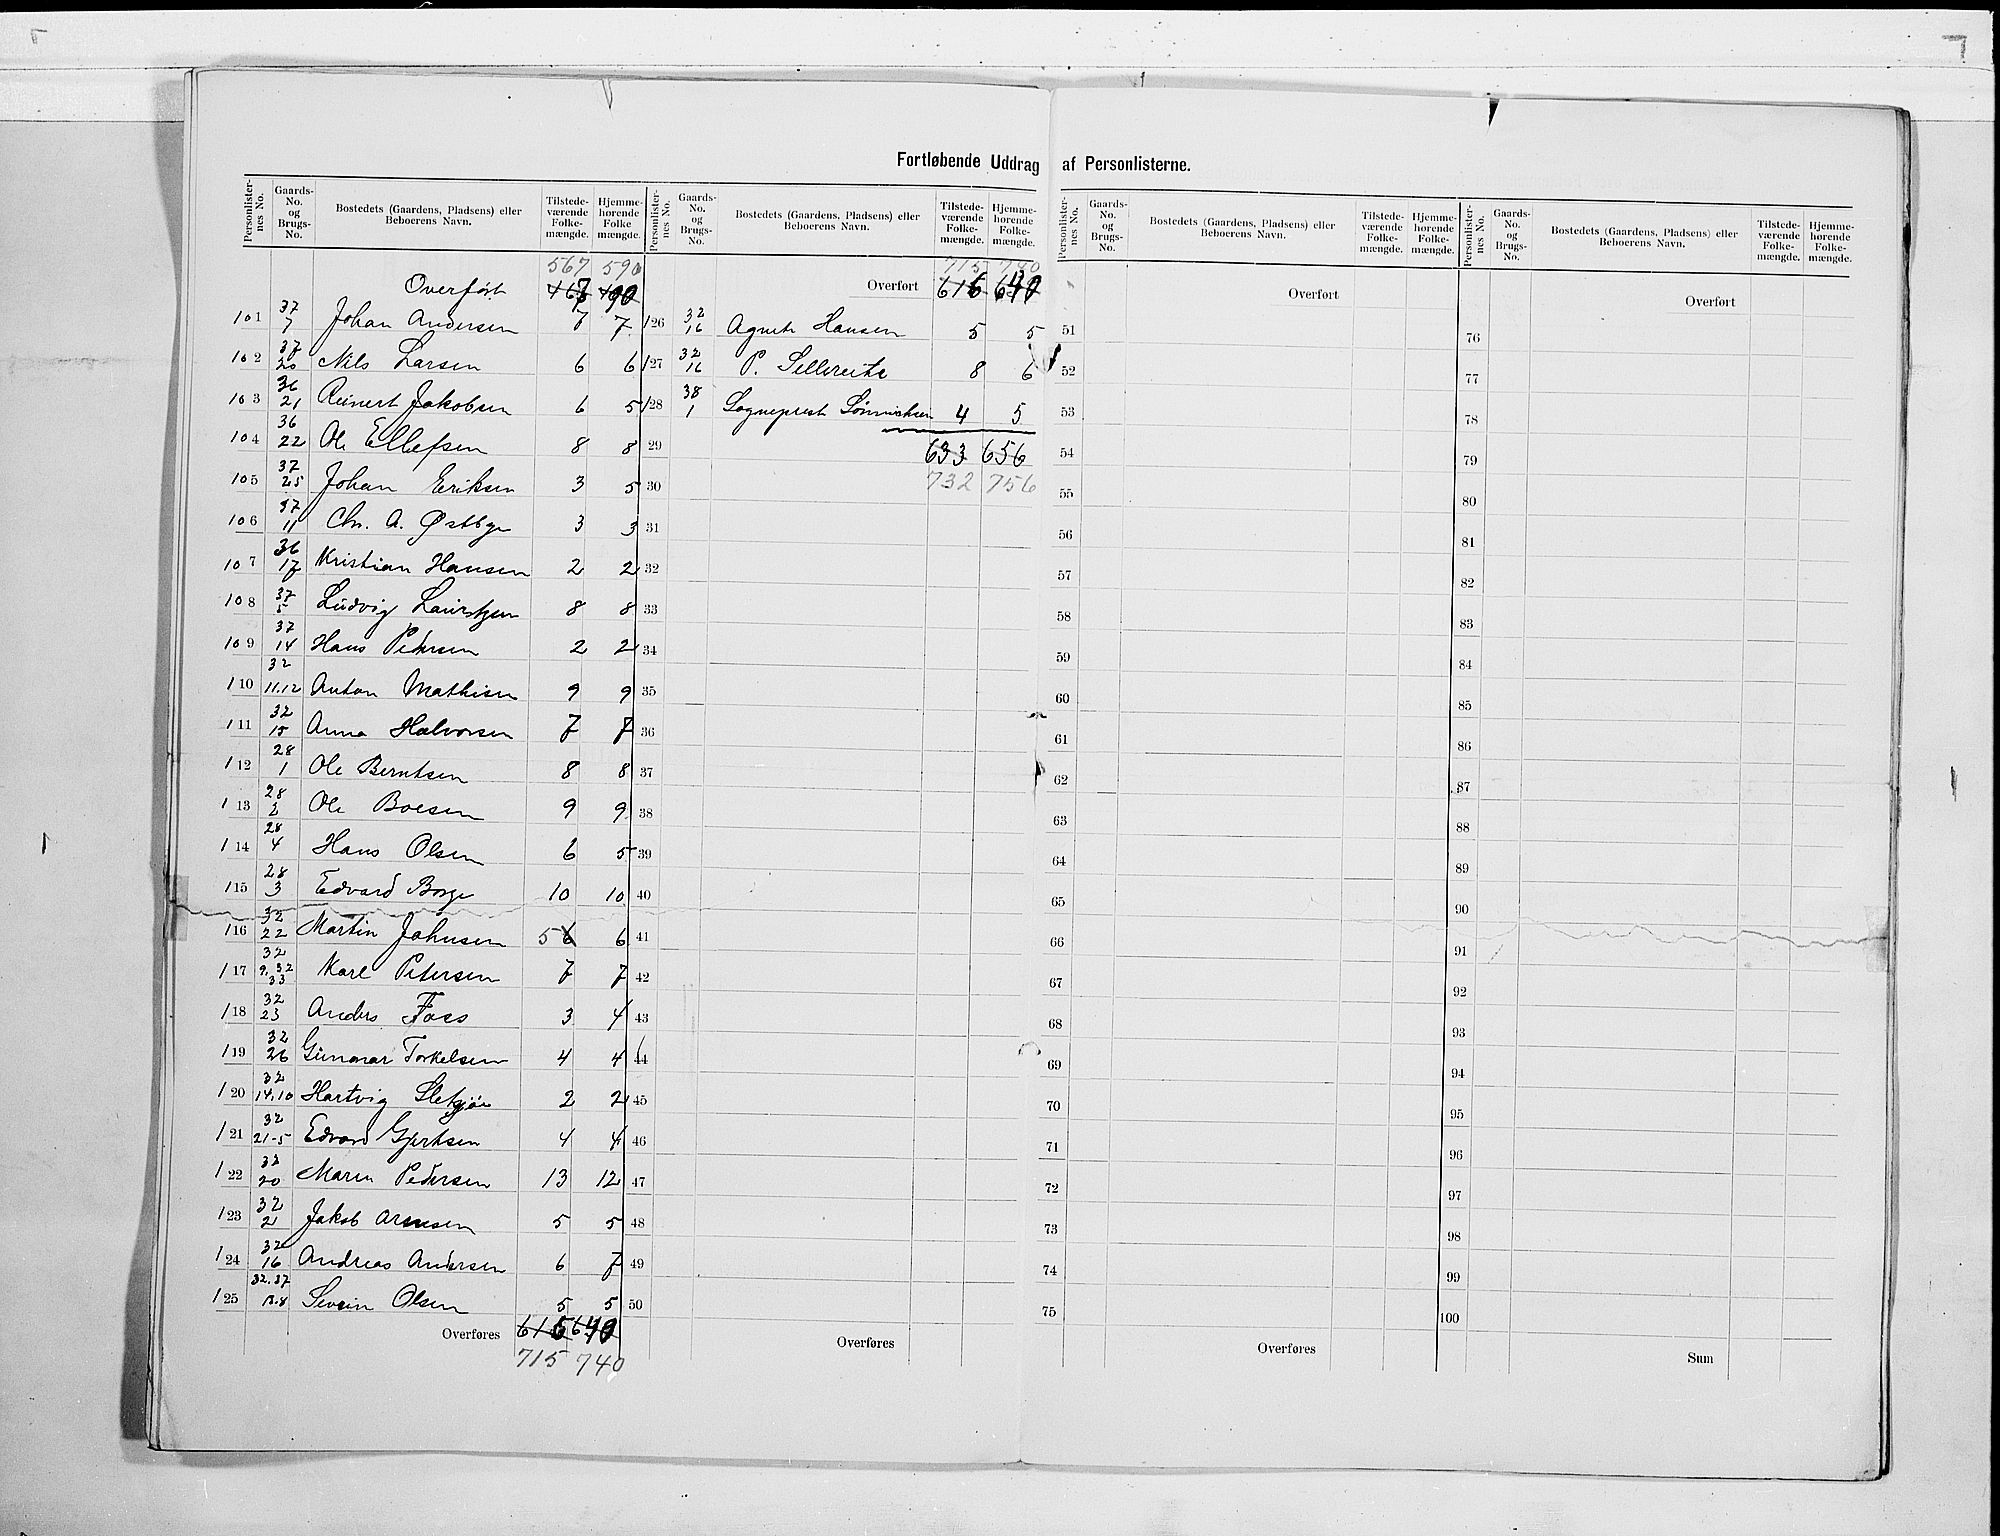 Fortløbende Uddrag af Personlisterne.
Personlister-nes No. Gaards-No. og Brugs-No. Bostedets (Gaardens, Pladsens) eller Beboerens Navn. Tilstede-værende Folke-mængde. Hjemme-hørende Folke-mængde. Personlister-nes No. Gaards-No. og Brugs-No. Bostedets (Gaardens, Pladsens) eller Beboerens Navn. Tilstede-værende Folke-mængde. Hjemme-hørende Folke-mængde. Personlister-nes No. Gaards-No. og Brugs-No. Bostedets (Gaardens, Pladsens) eller Beboerens Navn. Tilstede-værende Folke-mængde. Hjemme-hørende Folke-mængde. Personlister-nes No. Gaards-No. og Brugs-No. Bostedets (Gaardens, Pladsens) eller Beboerens Navn. Tilstede-værende Folke-mængde. Hjemme-hørende Folke-mængde.
567 590 715 740
Overført 467 490 Overført 615 640 Overført Overført
101 37/7 Johan Andersen 7 7 126 32/16 Agnete Hansen 5 5 51 76
102 37/20 Nils Larsen 6 6 127 32/16 P. Sellereite 8 6 52 77
103 36/21 Reinert Jakobsen 6 5 128 38/1 Sogneprest Sønnichsen 4 5 53 78
104 36/22 Ole Ellefsen 8 8 29 633 656 54 79
105 37/25 Johan Eriksen 3 5 30 732 756 55 80
106 37/11 Chr. A. Østbye 3 3 31 56 81
107 36/17 Kristian Hansen 2 2 32 57 82
108 37/5 Ludvig Lauritzen 8 8 33 58 83
109 37/14 Hans Pedersen 2 2 34 59 84
110 32/11.12 Anton Mathisen 9 9 35 60 85
111 32/15 Anna Halvorsen 7 7 36 61 86
112 28/1 Ole Berntsen 8 8 37 62 87
113 28/2 Ole Boesen 9 9 38 63 88
114 28/4 Hans Olsen 6 5 39 64 89
115 28/3 Edvard Borge 10 10 40 65 90
116 32/22 Martin Johnsen 5 6 6 41 66 91
117 32/9.32 33 Karl Petersen 7 7 42 67 92
118 32/23 Anders Foss 3 4 43 68 93
119 32/26 Gunnar Torkelsen 4 4 44 69 94
120 32/14.10 Hartvig Sletkjør 2 2 45 70 95
121 32/21-5 Edvard Gjertsen 4 4 46 71 96
122 32/20 Maren Pedersen 13 12 47 72 97
123 32/2 Jakob Arnesen 5 5 48 73 98
124 32/16 Andreas Andersen 6 7 49 74 99
125 32.37/13.8 Severin Olsen 5 5 50 75 100
Overføres 615 640 Overføres Overføres Sum
715 740